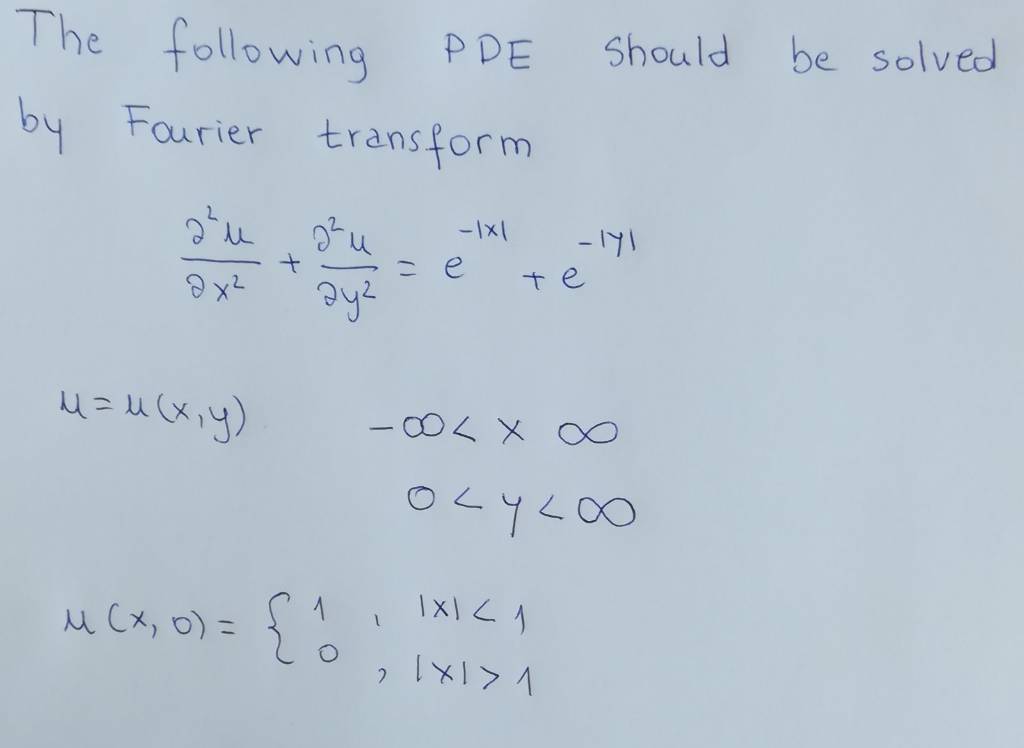 The following PDE should be solved
by Fourier transform
∂²u/∂x² + ∂²u/∂y² = e^{-|x|} + e^{-|y|}
u = u(x,y) -∞ < x ∞
0 < y < ∞
u(x,0) = { 1 , |x| < 1
0 , |x| > 1